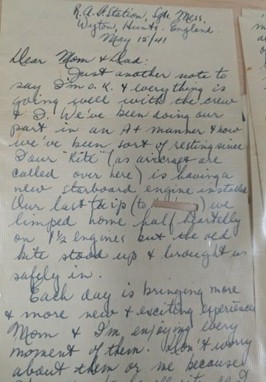 R.A.F. Station, Sgts. Mess.
Wyton, Hunts. England
May 15/41
Dear Mom & Dad:
Just another note to
say I'm O.K. & everything is
going well with the crew
& I. We've been doing our
part in an A+ manner & now
we've been sort of resting since
our "Kite" (as aircraft are
called over here) is having a
new starboard engine installed
Our last trip (to
) we
limped home half heartedly
on 1½ engines but the old
kite stood up & brought us
safely in.
Each day is bringing more
& more new & exciting experiences
Mom & I'm enjoying every
moment of them. Don't worry
about them or me because